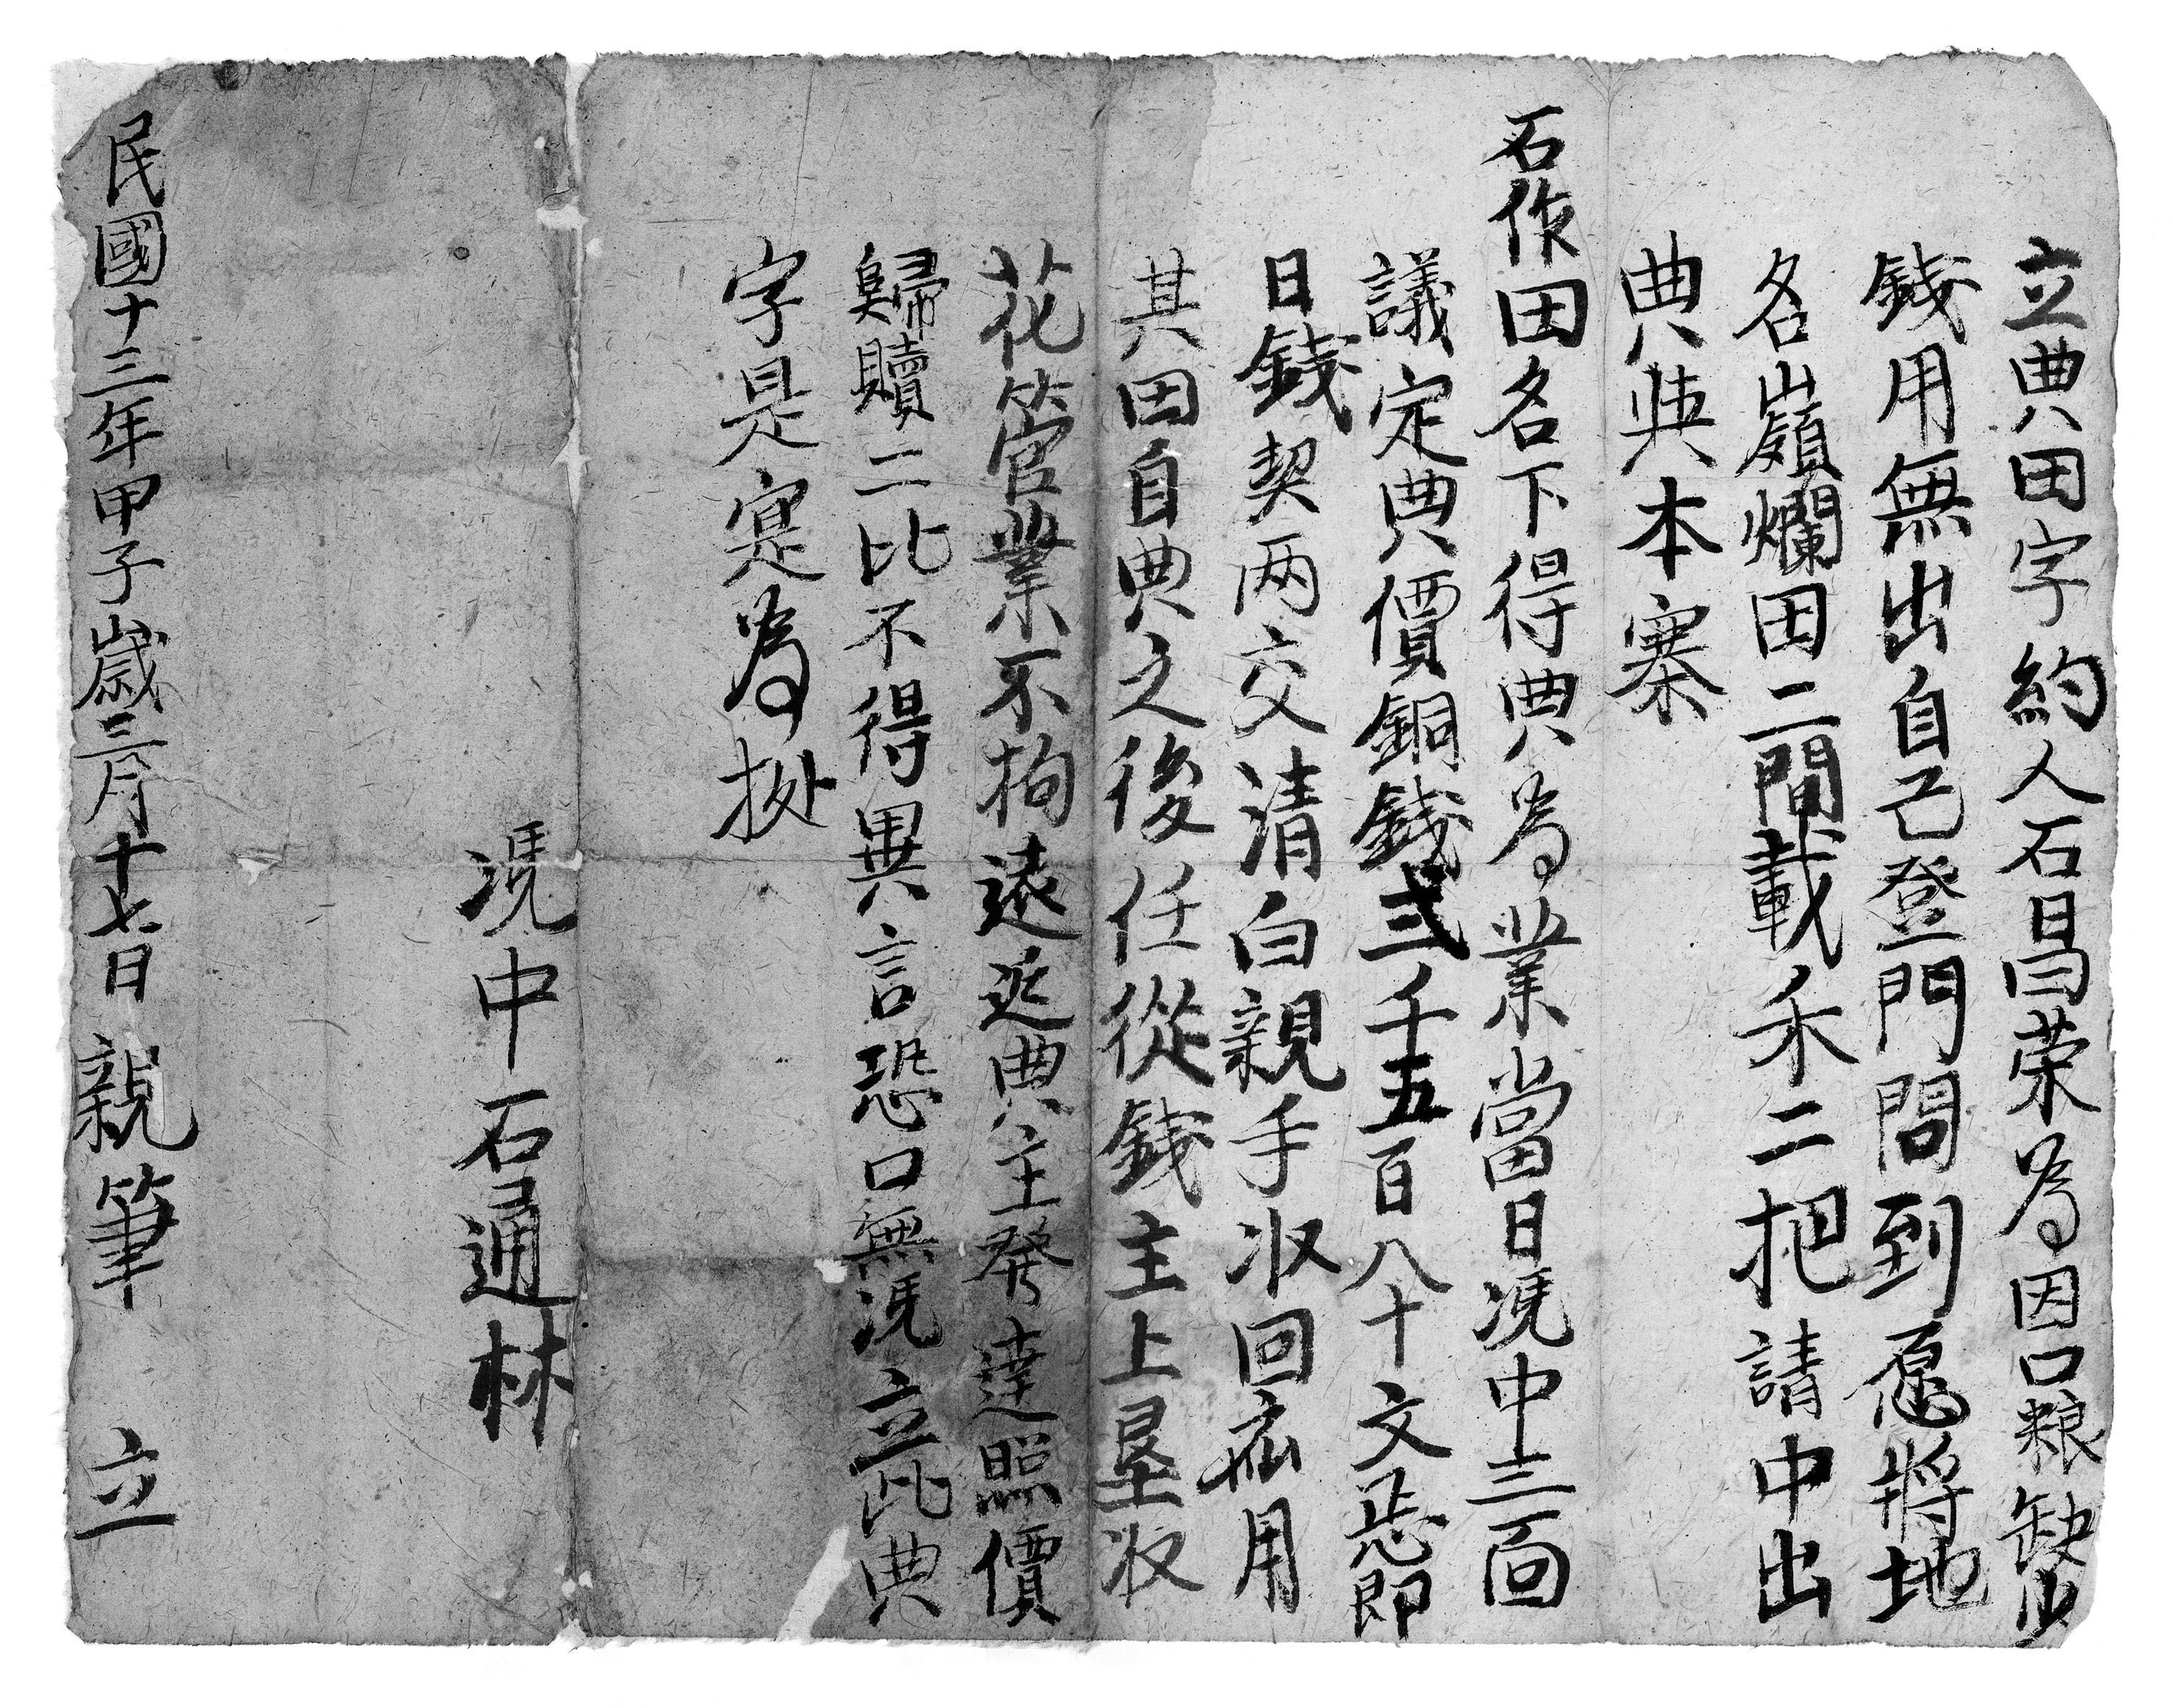 立典田字約人石昌荣為因口粮缺少
錢用無出自己登門問到愿將地
名嶺爛田二間載禾二把請中出
典與本寨
石作田名下得典為業當日凴中三面
議定典價銅錢弍千五百八十文足即
日錢契两交清白親手收回應用
其田自典之後任從錢主上垦收
花管業不拘遠近典主發達照價
歸贖二比不得異言恐口無凴立此典
字是寔為拠
凴中石通林
民國十三年甲子歲三月十七日親筆 立